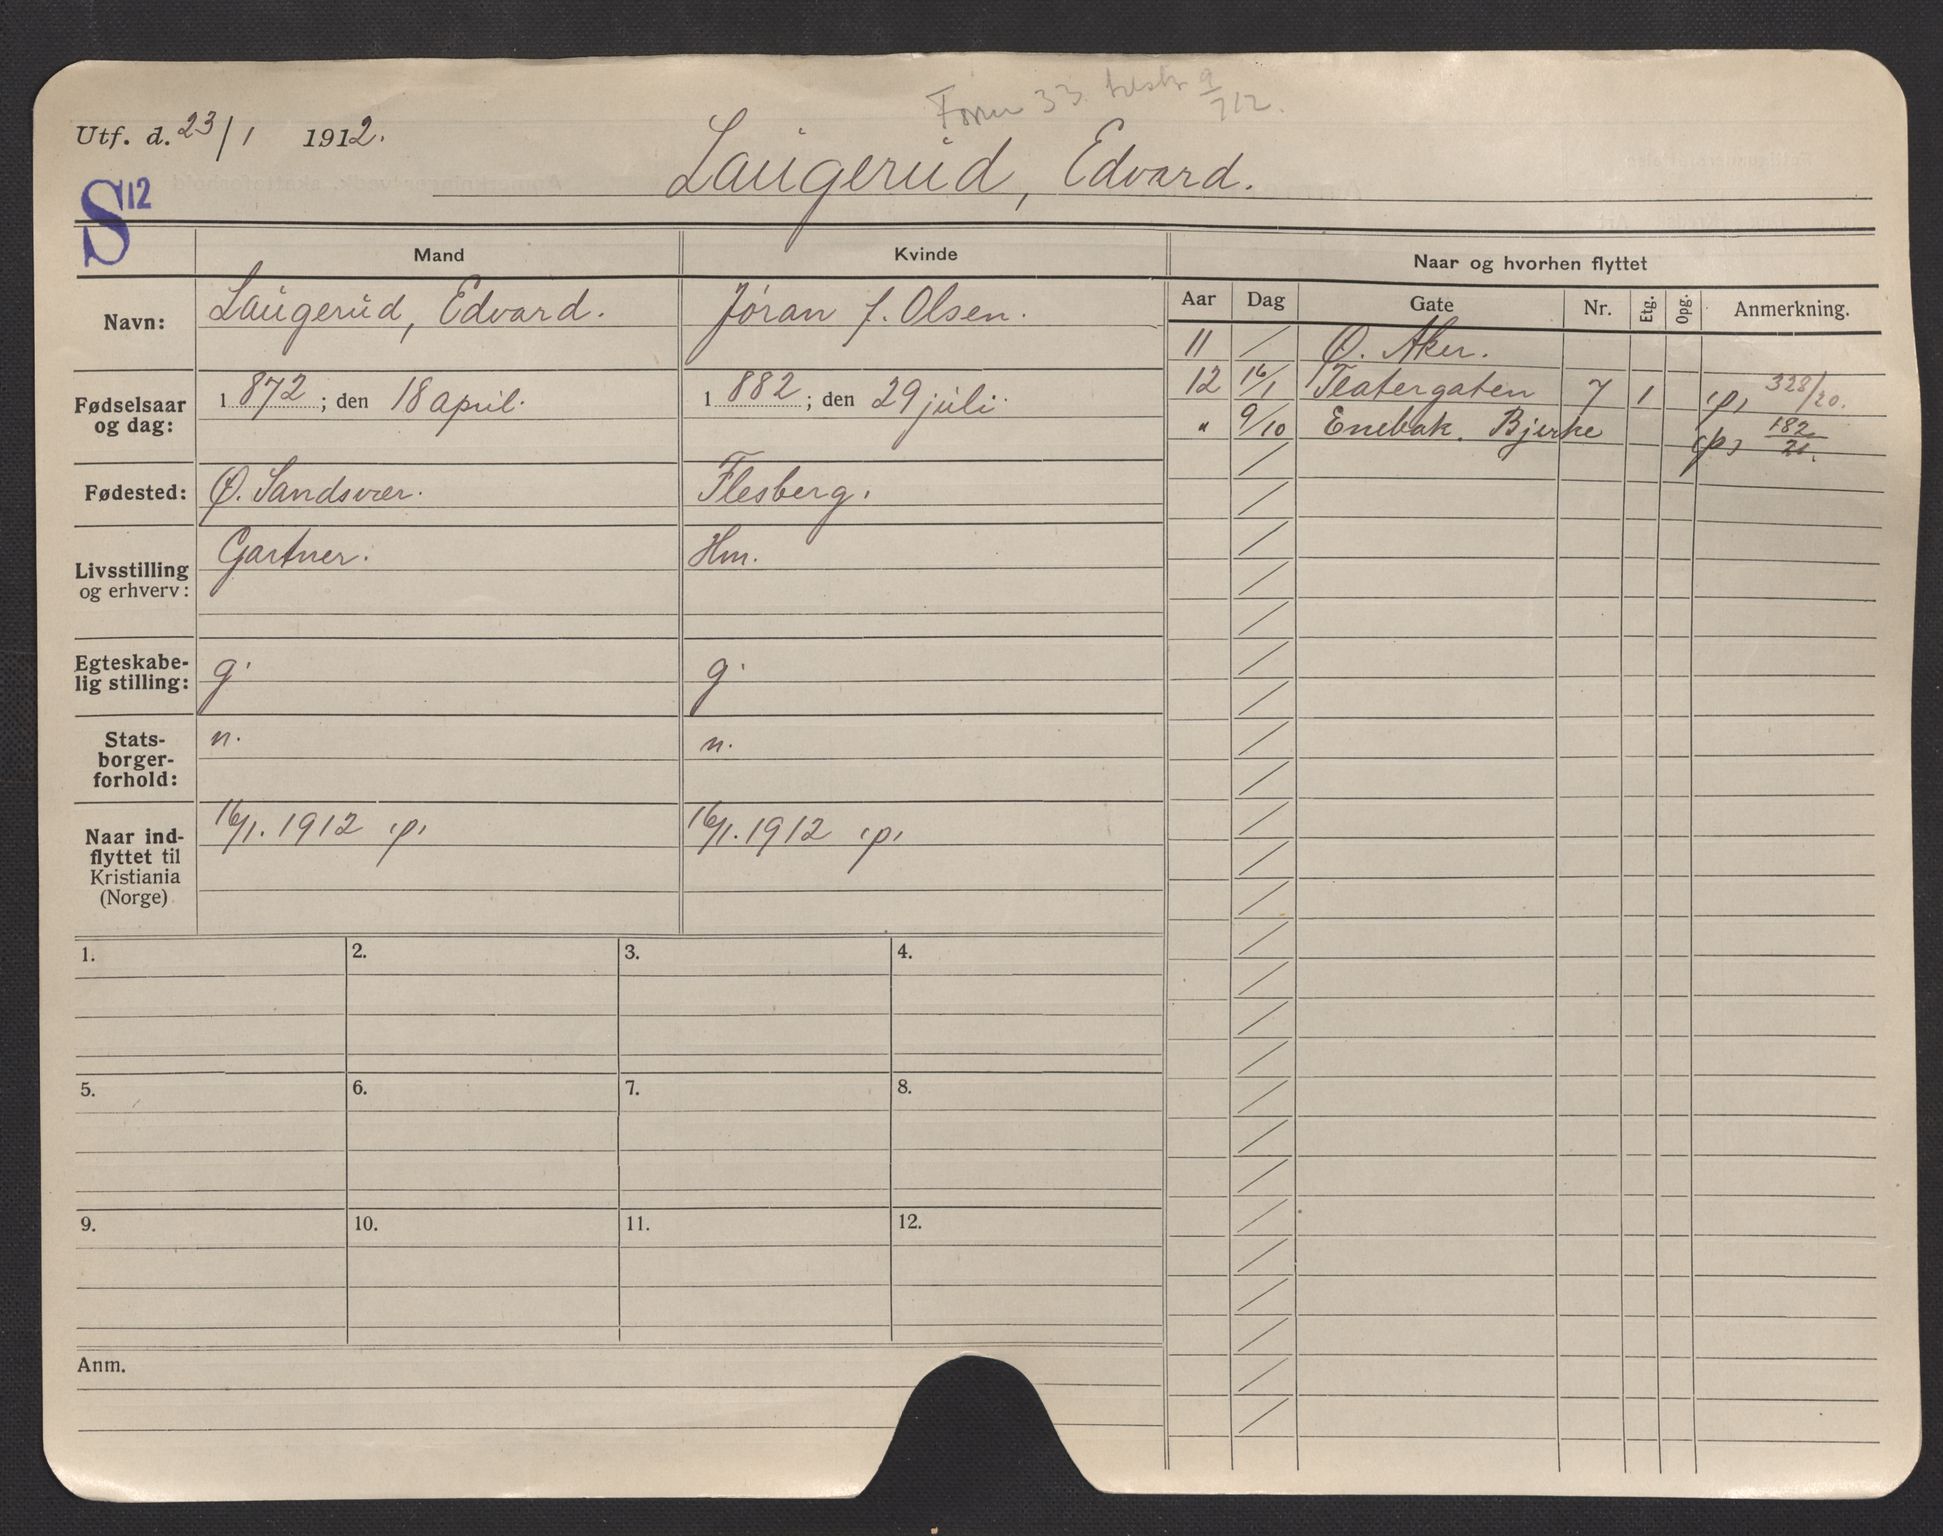 33 9/712.
Utf. d. 23/1 1912.
Laugerud, Edvard.
S 12
Mand Kvinde Naar og hvorhen flyttet
Aar Dag Gate Nr. Etg. Opg. Anmerkning.
Navn: Laugerud, Edvard. Jóran J. Olsen.
11 / Ø. Aker.
12 16/1 Teatergaten 7 1 ip, 328/20.
Fødselsaar og dag: 1872; den 18 april. 1882; den 29 juli.
" 9/10 Enebak. Bjerke ip, 182/21.
Fødested: Ø. Sandsvær. Flesberg.
Livsstilling og erhverv: Gartner. Hm.
Egteskabe-
lig stilling: g. g.
Stats-
borger-
forhold: n. n.
Naar ind-
flyttet til
Kristiania
(Norge) 16/1. 1912 ip, 16/1. 1912 ip,
1. 2. 3. 4.
5. 6. 7. 8.
9. 10. 11. 12.
Anm.